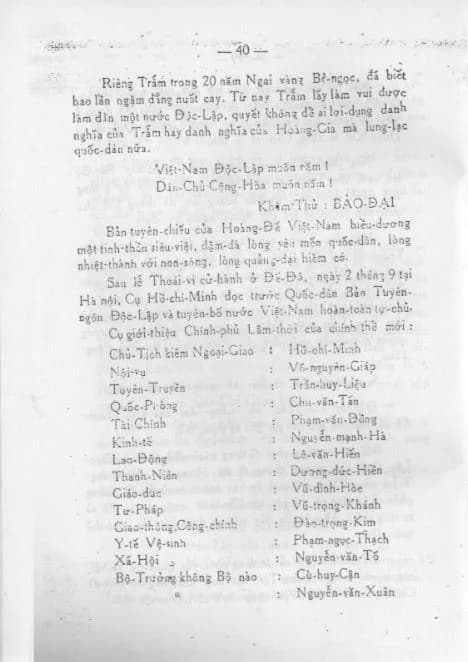 — 40 —
Riêng Trẫm trong 20 năm Ngai vàng Bệ-ngọc, đã biết
bao lần ngậm đắng nuốt cay. Từ nay Trẫm lấy làm vui được
làm dân một nước Độc-Lập, quyết không để ai lợi-dụng danh
nghĩa của Trẫm hay danh nghĩa của Hoàng-Gia mà lung-lạc
quốc-dân nữa.
Việt-Nam Độc-Lập muôn năm !
Dân-Chủ Cộng-Hòa muôn năm !
Khâm Thử : BẢO-ĐẠI
Bản tuyên-chiếu của Hoàng-Đế Việt-Nam biểu-dương
một tinh-thần siêu-việt, đậm-đà lòng yêu mến quốc-dân, lòng
nhiệt-thành với non-sông, lòng quảng-đại hiếm có.
Sau lễ Thoái-vị cử-hành ở Đế-Đô, ngày 2 tháng 9 tại
Hà nội, Cụ Hồ-chí-Minh đọc trước Quốc-dân Bản Tuyên-
ngôn Độc-Lập và tuyên-bố nước Việt-Nam hoàn-toàn tự-chủ.
Cụ giới-thiệu Chính-phủ Lâm-thời của chính thể mới :
Chủ-Tịch kiêm Ngoại-Giao : Hồ-chí-Minh
Nội-vụ : Võ-nguyên-Giáp
Tuyên-Truyền : Trần-huy-Liệu
Quốc-Phòng : Chu-văn-Tấn
Tài Chính : Phạm-văn-Đồng
Kinh-tế : Nguyễn-mạnh-Hà
Lao-Động : Lê-văn-Hiến
Thanh-Niên : Dương-đức-Hiền
Giáo-dục : Vũ-đình-Hòe
Tư-Pháp : Vũ-trọng-Khánh
Giao-thông Công-chính : Đào-trọng-Kim
Y-tế Vệ-sinh : Phạm-ngọc-Thạch
Xã-Hội : Nguyễn-văn-Tố
Bộ-Trưởng không Bộ nào : Cù-huy-Cận
« : Nguyễn-văn-Xuân